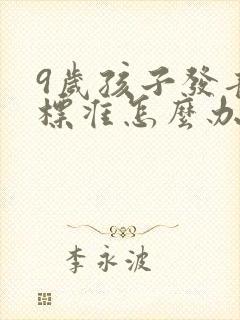 9歲孩子發育
標準怎麼办
李永波